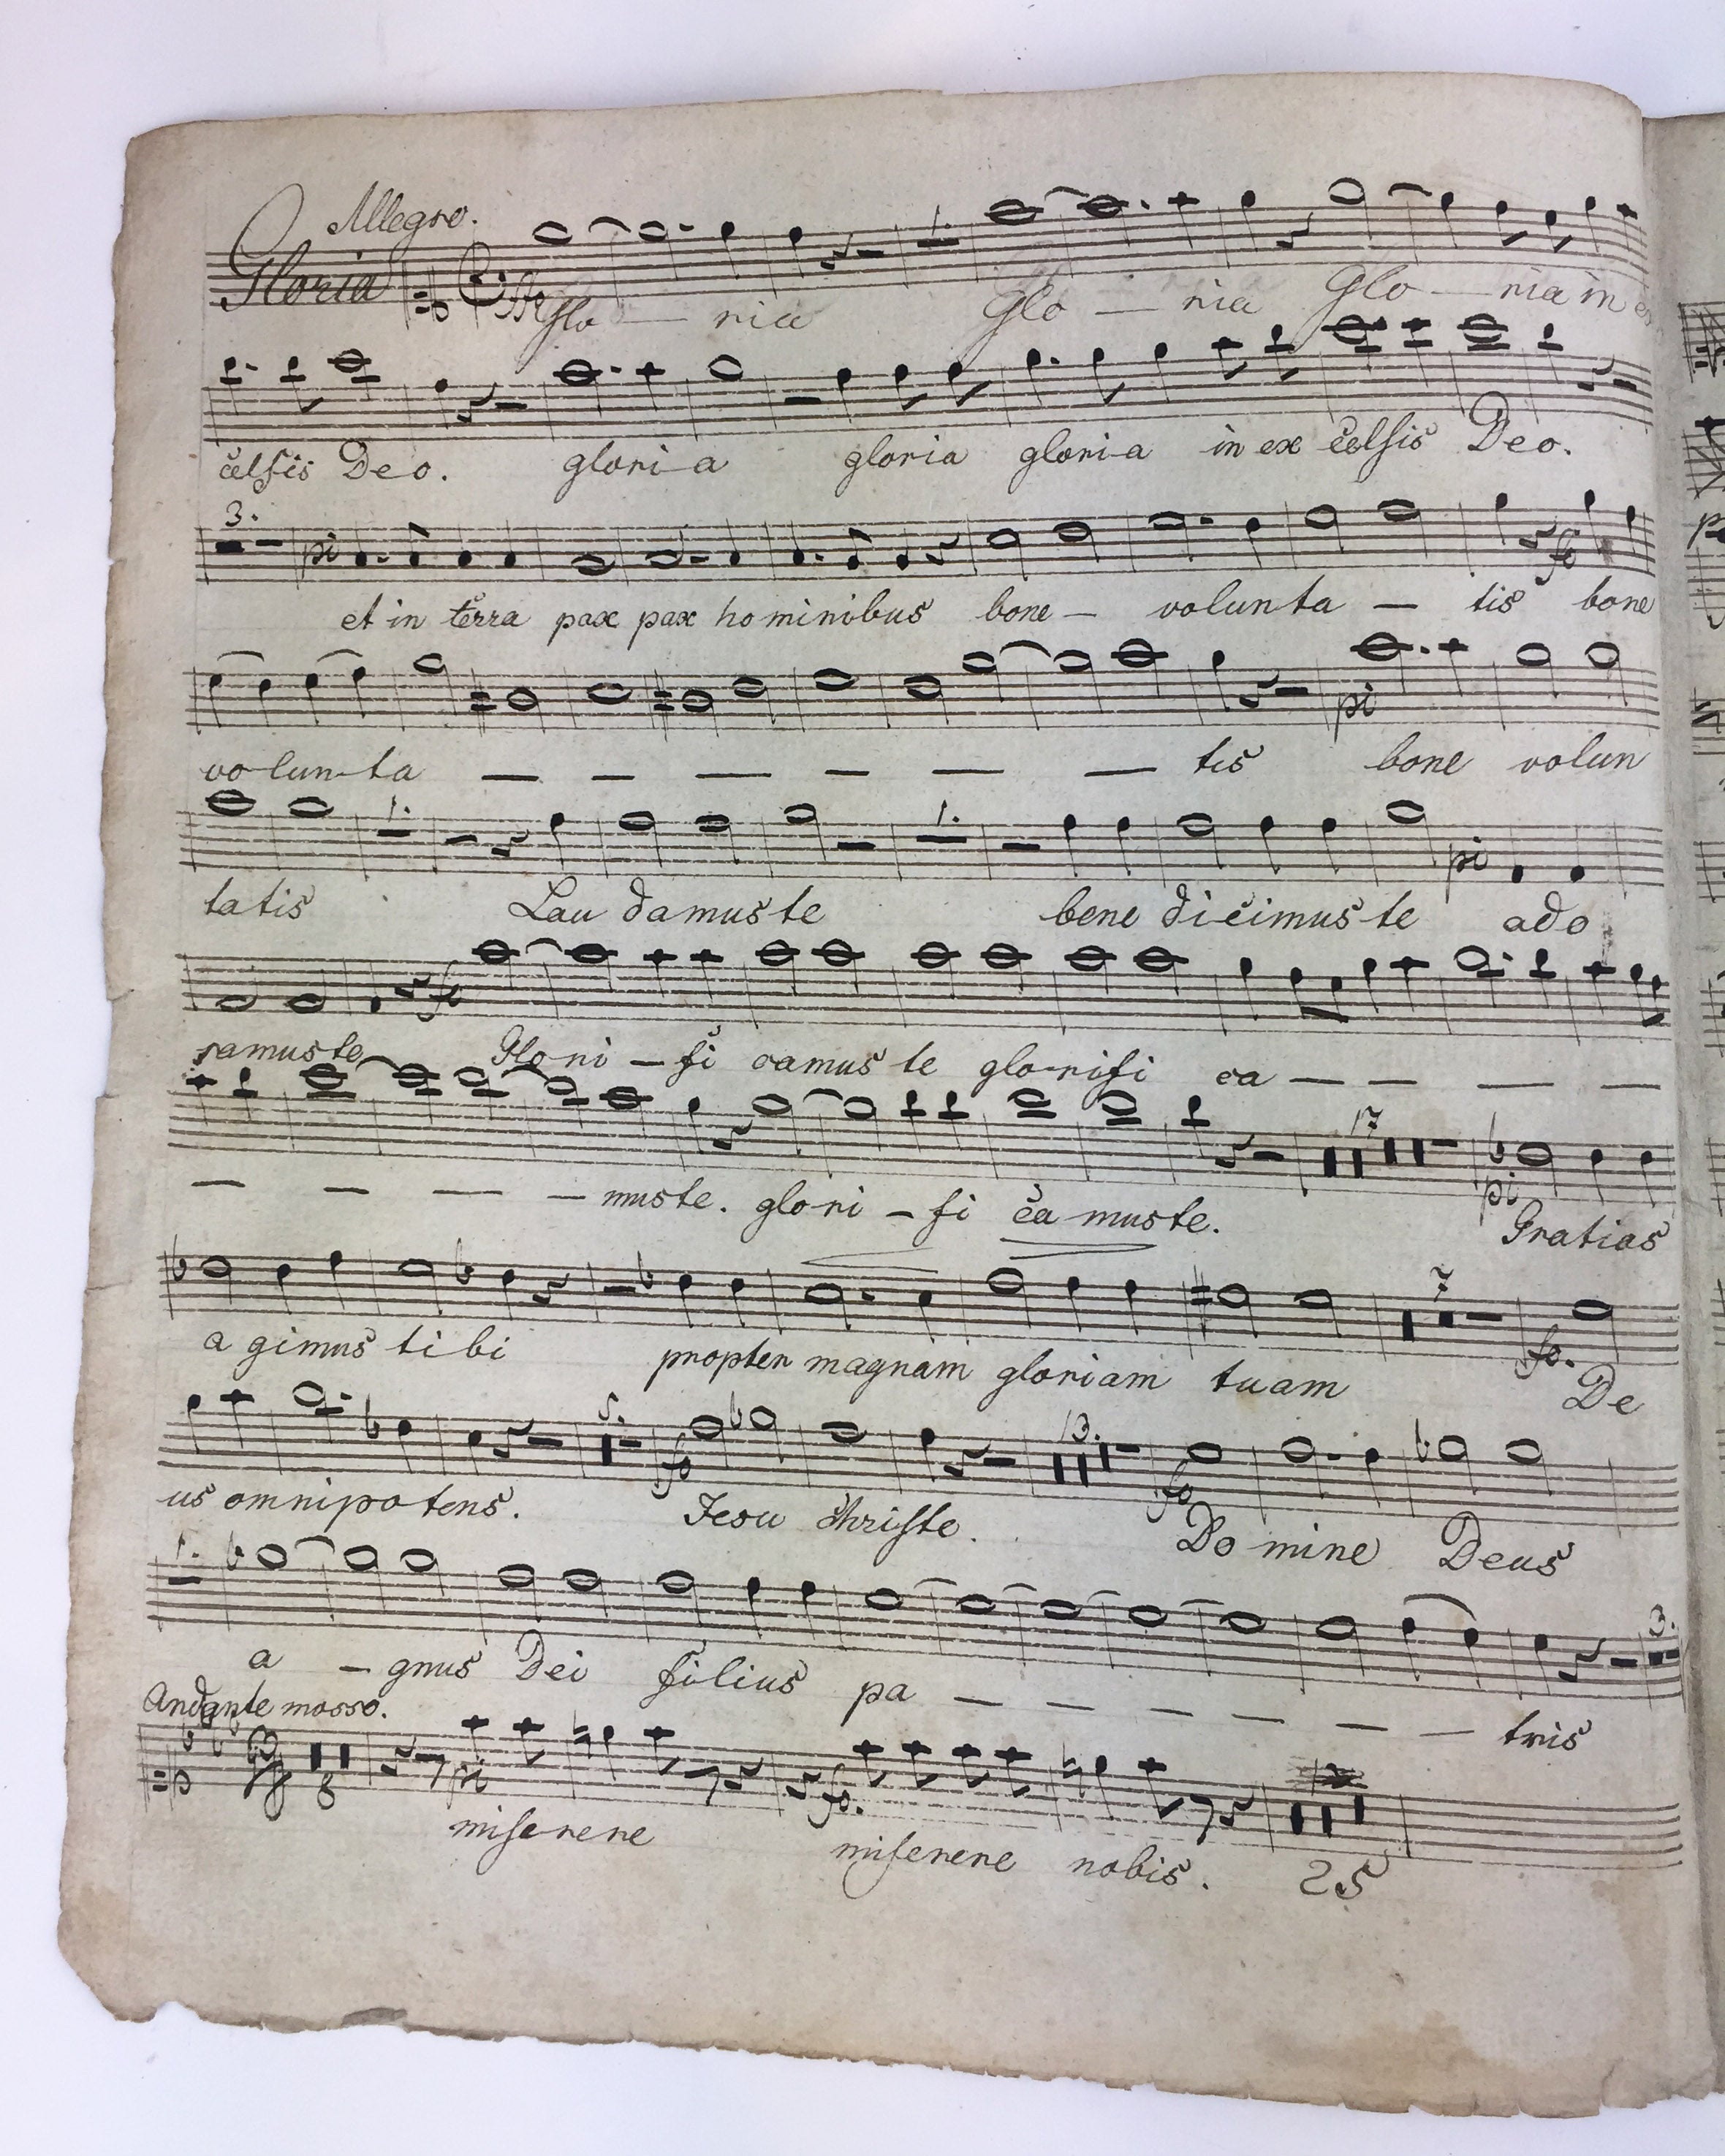 Allegro.
Gloria
ffo
1.
Glo — ria Glo — ria Glo — ria in ex
celsis Deo. glori-a gloria glori-a in ex celsis Deo.
3.
pi fo
et in terra pax pax hominibus bone — volunta — tis bone
pi
volun-ta — — — — — — tis bone volun
1. 1. pi
tatis Lau damus te bene dicimus te ado
fo
ramus te Glori — fi camus te glo-rifi ca — — — —
17
pi
— — — — muste. glo-ri — fi ca muste. Gratias
7
fo.
a gimus tibi propter magnam gloriam tuam De
5. fo 13. fo
us omnipotens. Jesu Christe. Do mine Deus
1. 3.
a — gnus Dei filius pa — — — — — — — tris
Andante mosso.
8 pi fo.
miserere miserere nobis. 25